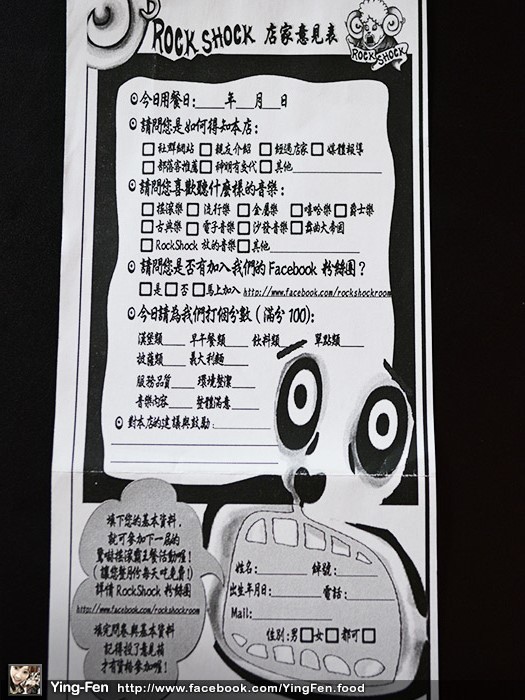 ROCK SHOCK 店家意見表
ROCK SHOCK
今日用餐日:____年__月__日
請問您是如何得知本店:
□社群網站 □親友介紹 □經過店家 □媒體報導
□部落客推薦 □神明有交代 □其他
請問您喜歡聽什麼樣的音樂:
□搖滾樂 □流行樂 □金屬樂 □嘻哈樂 □爵士樂
□古典樂 □電子音樂 □沙發音樂 □舞曲大帝國
□RockShock 放的音樂 □其他
請問您是否有加入我們的 Facebook 粉絲團?
□是 □否 □馬上加入 http://www.facebook.com/rockshockroom
今日請為我們打個分數 (滿分 100):
漢堡類____ 早午餐類____ 飲料類____ 單點類____
披薩類____ 義大利麵____
服務品質____ 環境整潔____
音樂內容____ 整體滿意____
對本店的建議與鼓勵:
填下您的基本資料,
就可參加下一屆的
驚嚇搖滾霸王餐活動喔!
(讓您整月份每天吃免費!)
詳情 RockShock 粉絲團
http://www.facebook.com/rockshockroom
填完問卷與基本資料
記得投了意見箱
才有資格參加喔!
姓名:____ 綽號:____
出生年月日:____ 電話:____
Mail:____
性別:男□女□ 都可□
Ying-Fen http://www.facebook.com/YingFen.food